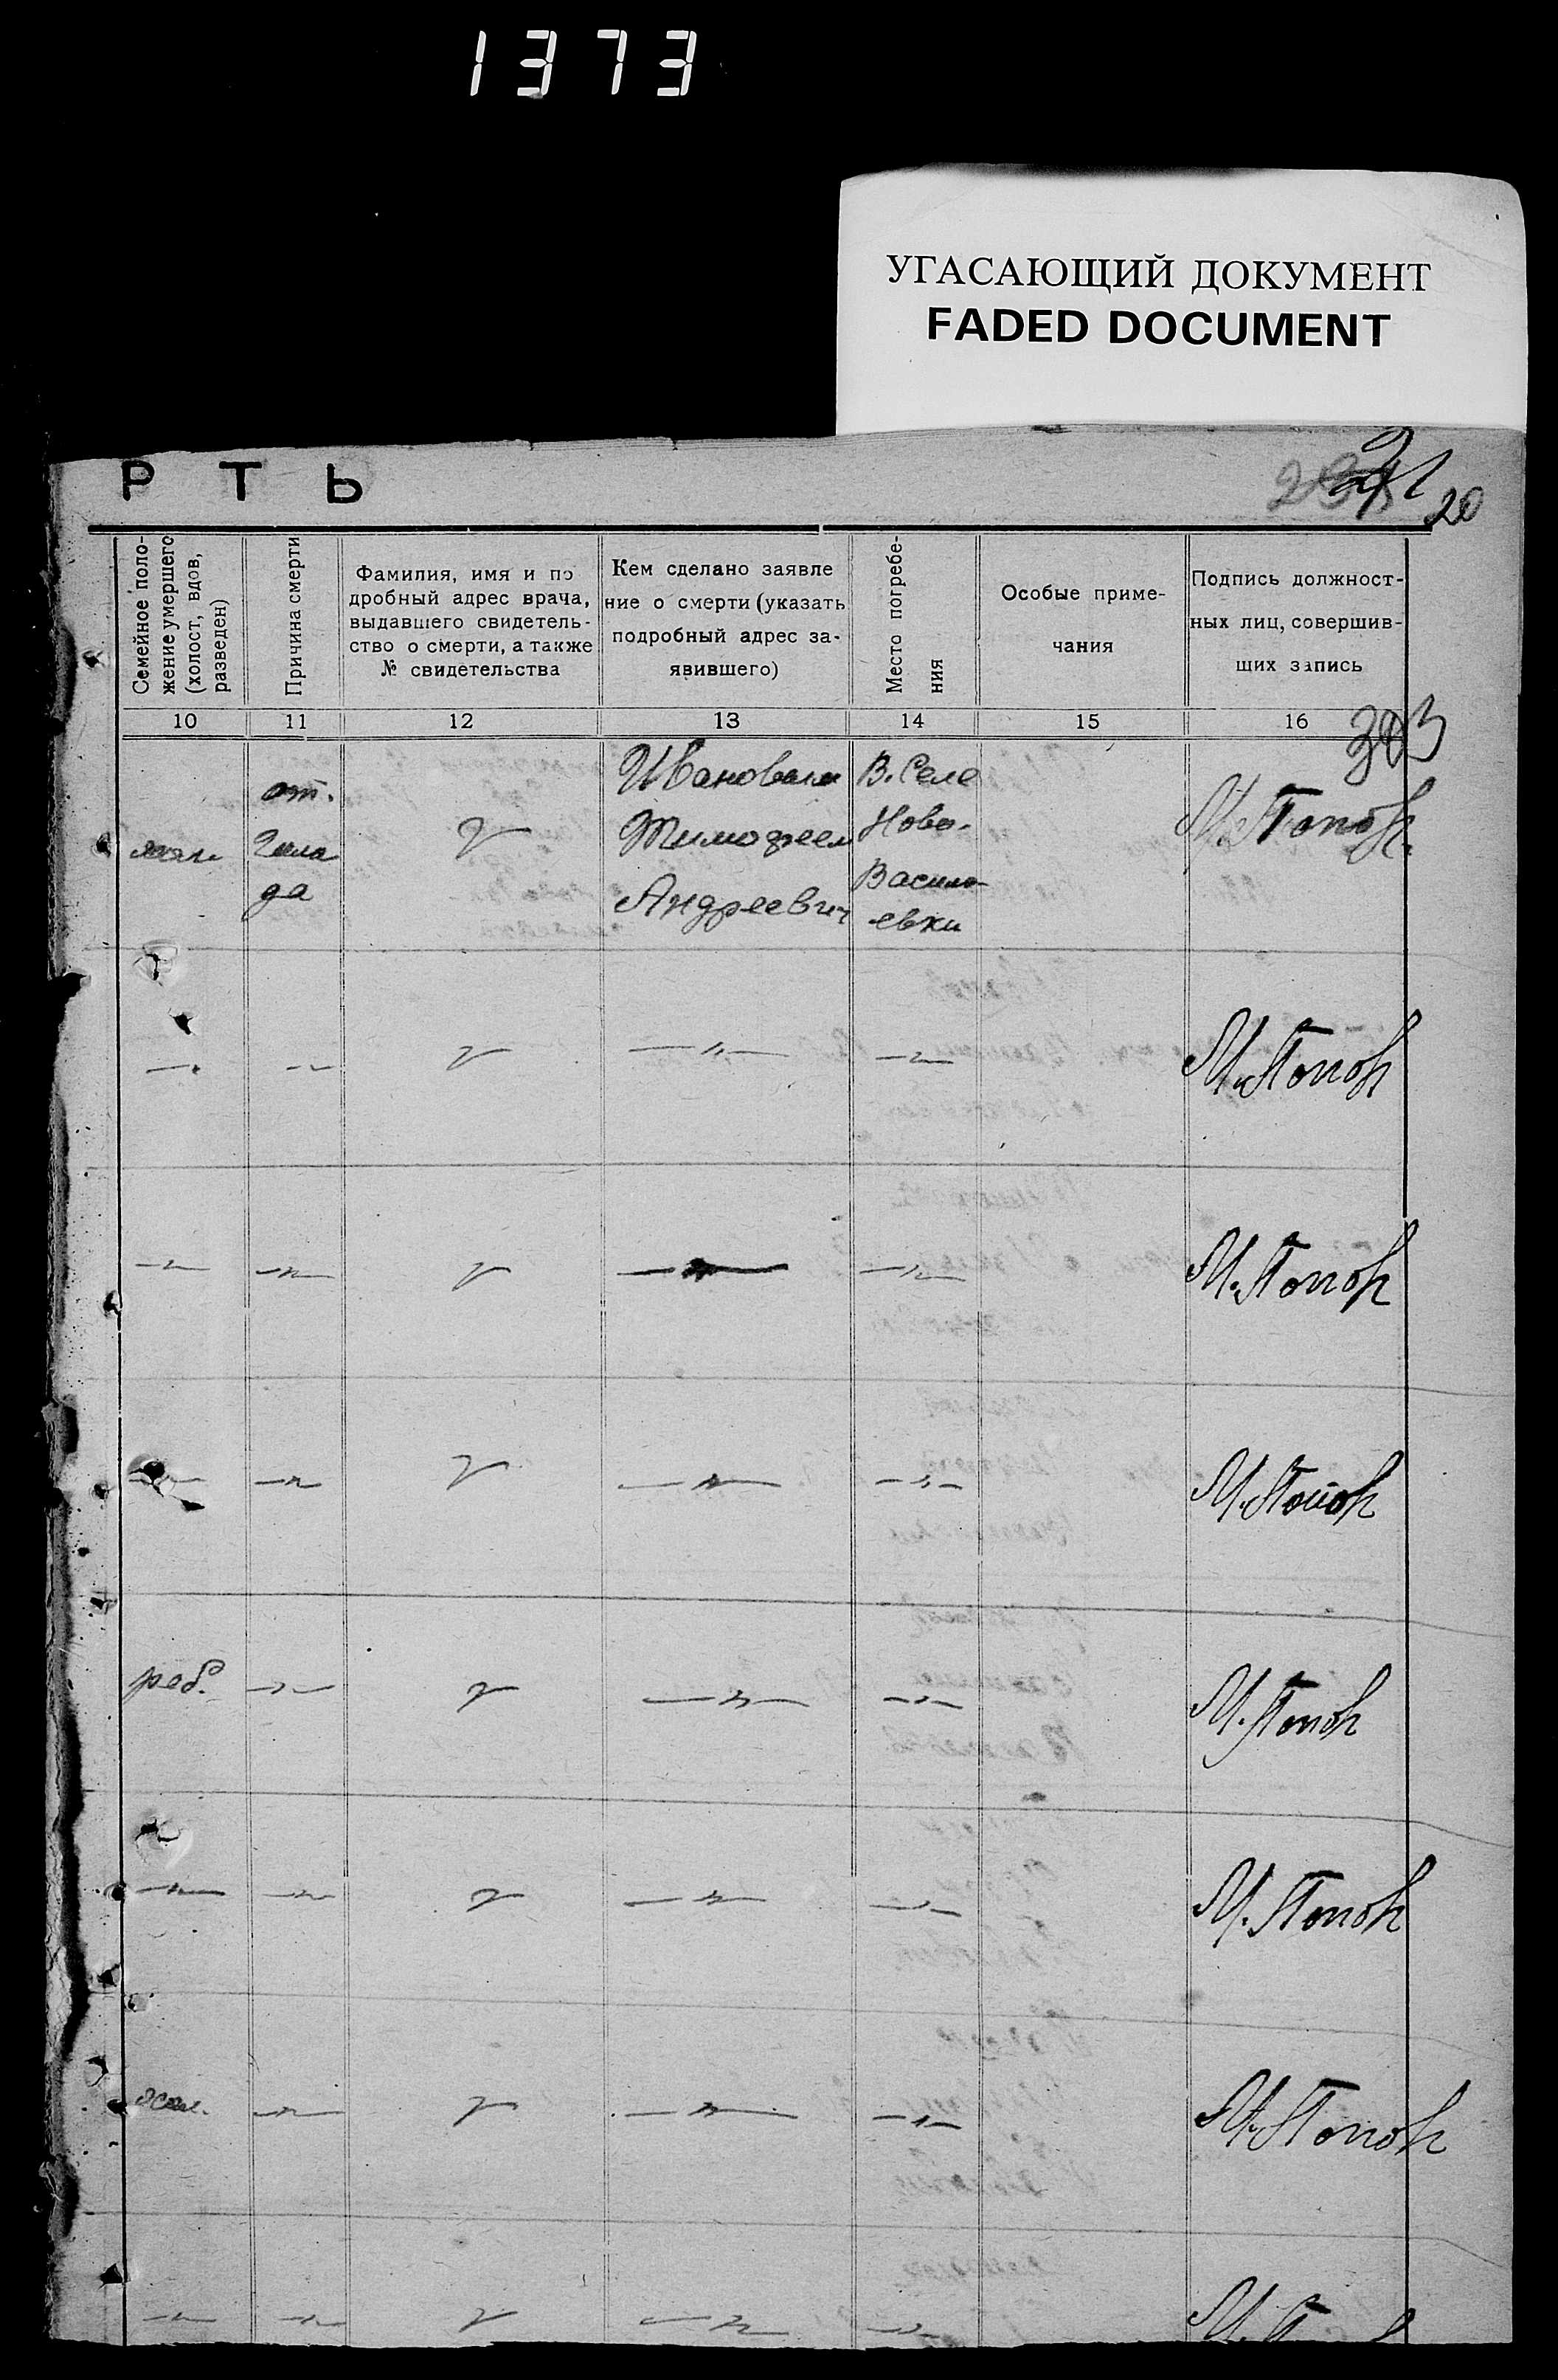 1373
УГАСАЮЩИЙ ДОКУМЕНТ
FADED DOCUMENT
Р Т Ь
20
Семейное поло-
жение умершего
(холост, вдов,
разведен)
Причина смерти
Фамилия, имя и по
дробный адрес врача,
выдавшего свидетель-
ство о смерти, а также
№ свидетельства
Кем сделано заявле
ние о смерти (указать
подробный адрес за-
явившего)
Место погребе-
ния
Особые приме-
чания
Подпись должност-
ных лиц, совершив-
ших запись
10 11 12 13 14 15 16
303
от.
Ивановым
Тимофеем
Андреевич
В. Селе
Ново-
Василь-
евки
М. Попов
— — — „ — — „ — М. Попов
— „ — — „ — — „ — — „ — М. Попов
— „ — — „ — — „ — М. Попов
реб. — „ — — „ — — „ — М. Попов
— „ — — „ — — „ — — „ — М. Попов
— „ — — „ — — „ — М. Попов
— „ — — „ — — „ — — „ —